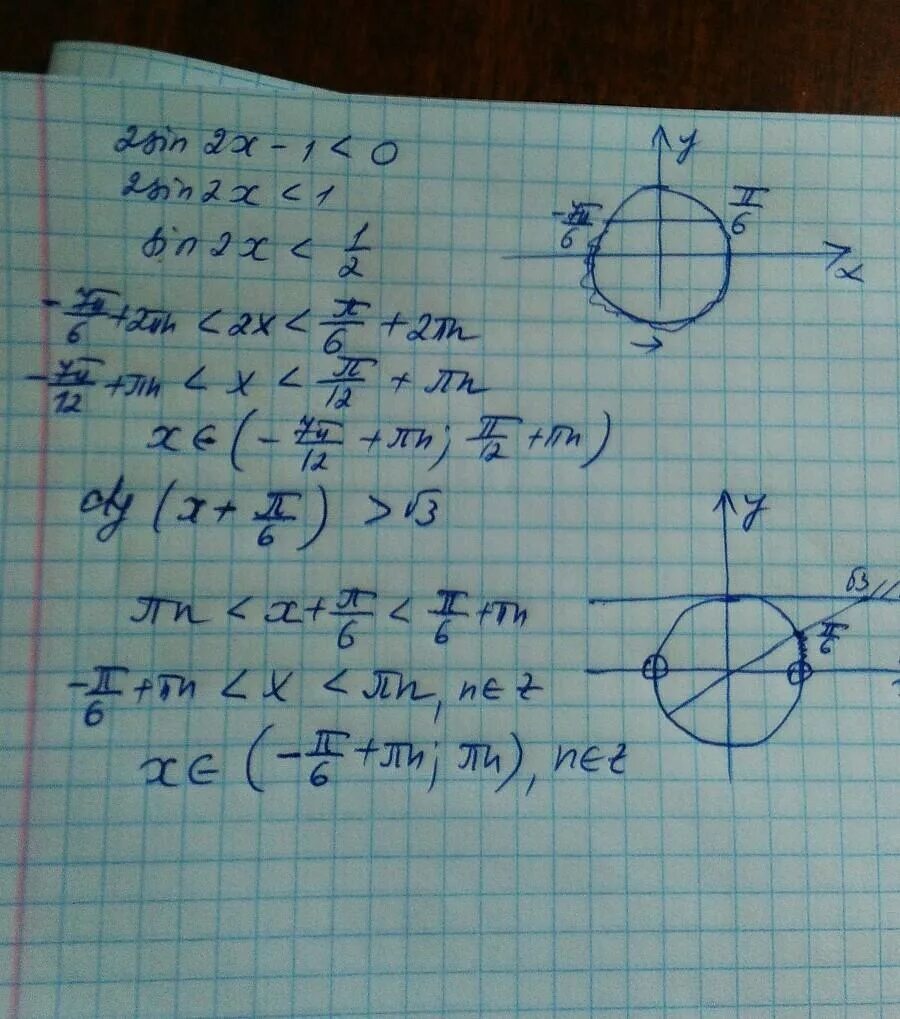 2sin 2x - 1 < 0
2sin 2x < 1
sin 2x < 1/2
-7π/6 + 2πn < 2x < π/6 + 2πn
-7π/12 + πn < x < π/12 + πn
x ∈ (-7π/12 + πn; π/12 + πn)
y
-7π/6
π/6
x
ctg (x + π/6) > √3
πn < x + π/6 < π/6 + πn
-π/6 + πn < x < πn, n ∈ Z
x ∈ (-π/6 + πn; πn), n ∈ Z
y
√3
π/6